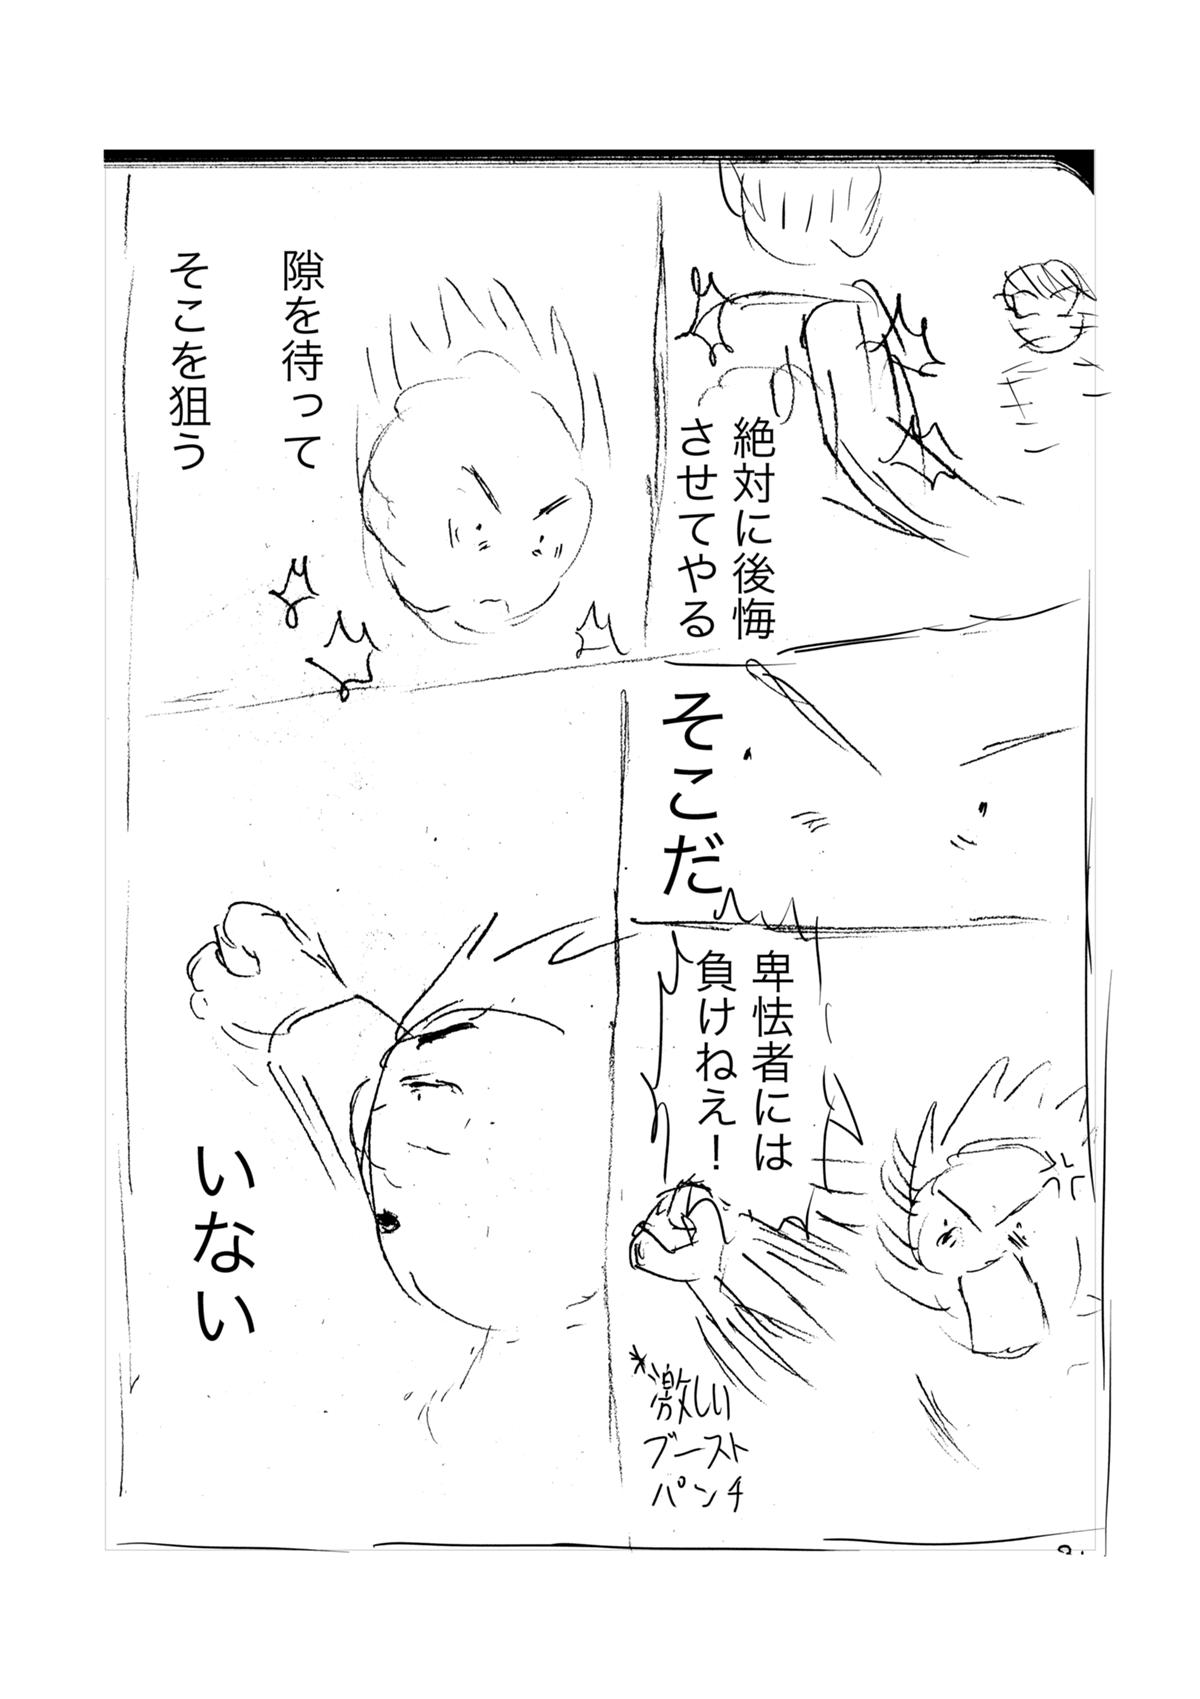 絶対に後悔
させてやる
隙を待って
そこを狙う
そこだ
卑怯者には
負けねえ!
*激しい
ブースト
パンチ
いない